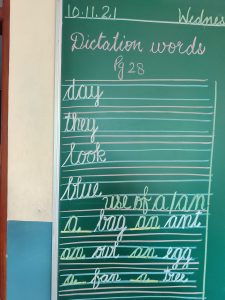 10.11.21 Wednes
Dictation words
Pg 28
day
they
look
blue
use of a/an
a bag an ant
an owl an egg
a fan a tree